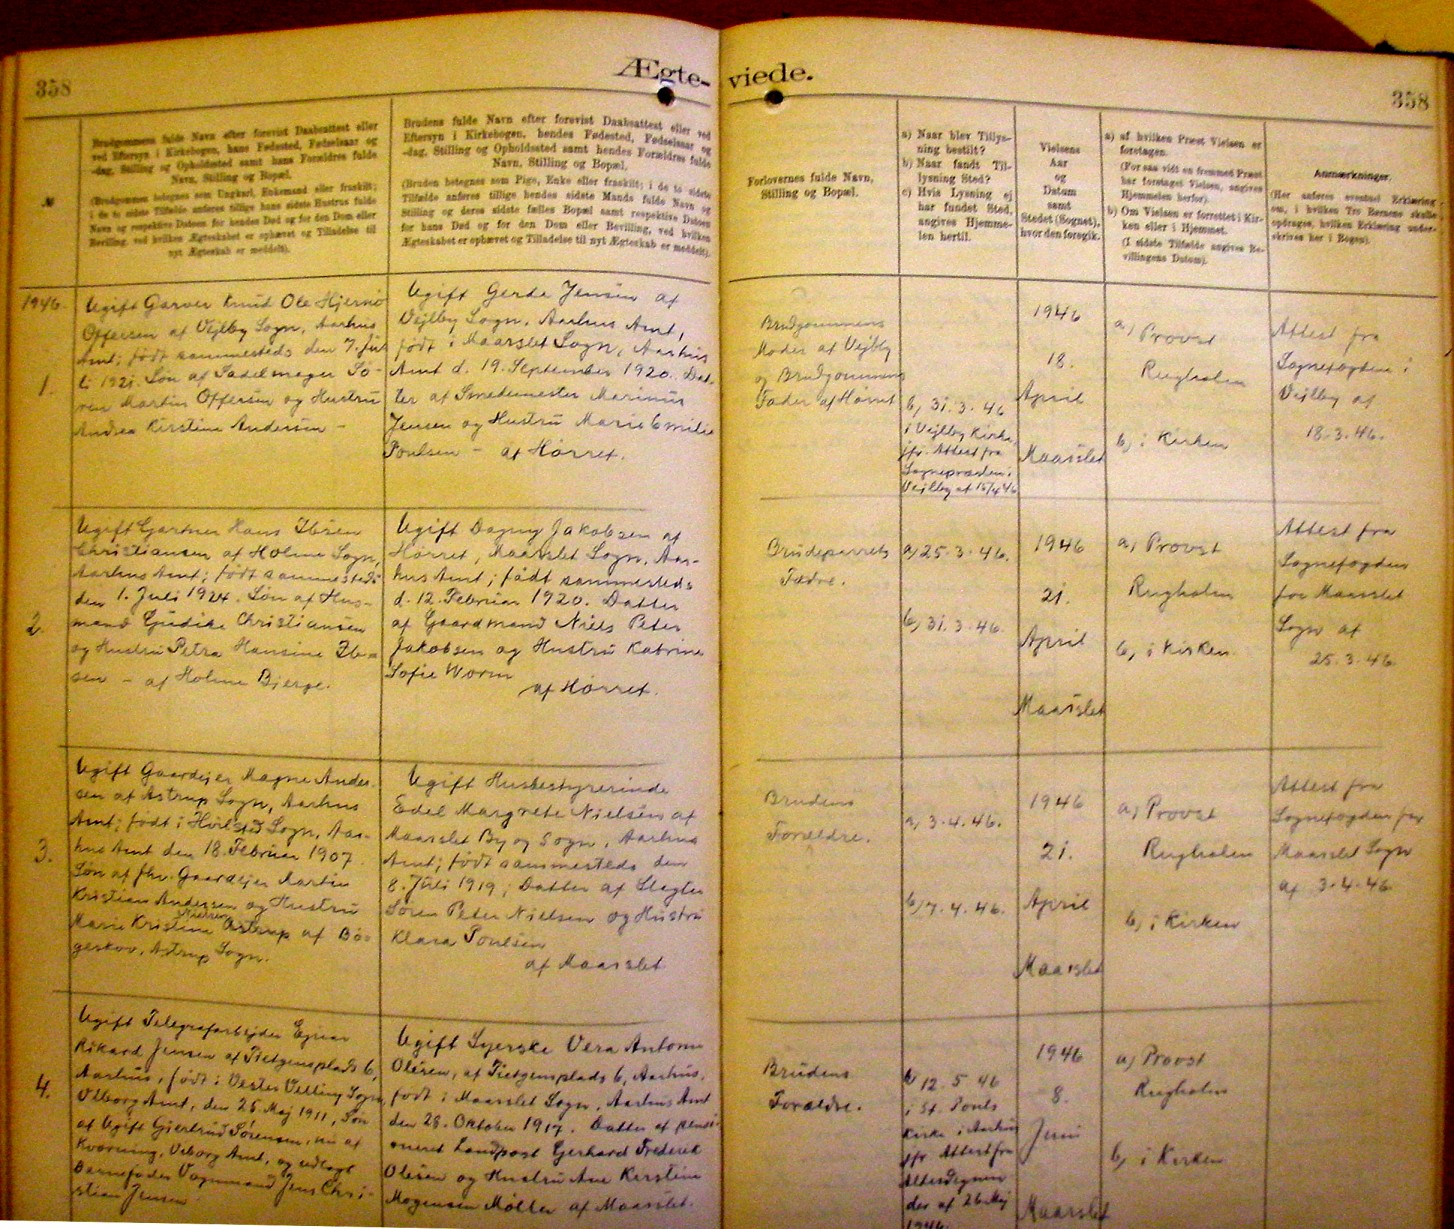 358
Ægte-
viede.
358
№
Brudgommens fulde Navn efter forevist Daabsattest eller
ved Eftersyn i Kirkebogen, hans Fødested, Fødselsaar og
-dag, Stilling og Opholdssted samt hans Forældres fulde
Navn, Stilling og Bopæl.
(Brudgommen betegnes som Ungkarl, Enkemand eller fraskilt;
i de to sidste Tilfælde anføres tillige hans sidste Hustrus fulde
Navn og respektive Datoen for hendes Død og for den Dom eller
Bevilling, ved hvilken Ægteskabet er ophævet og Tilladelse til
nyt Ægteskab er meddelt).
Brudens fulde Navn efter forevist Daabsattest eller ved
Eftersyn i Kirkebogen, hendes Fødested, Fødselsaar og
-dag, Stilling og Opholdssted samt hendes Forældres fulde
Navn, Stilling og Bopæl.
(Bruden betegnes som Pige, Enke eller fraskilt; i de to sidste
Tilfælde anføres tillige hendes sidste Mands fulde Navn og
Stilling og deres sidste fælles Bopæl samt respektive Datoen
for hans Død og for den Dom eller Bevilling, ved hvilken
Ægteskabet er ophævet og Tilladelse til nyt Ægteskab er meddelt).
Forlovernes fulde Navn,
Stilling og Bopæl.
a) Naar blev Tillys-
ning bestilt?
b) Naar fandt Til-
lysning Sted?
c) Hvis Lysning ej
har fundet Sted,
angives Hjemme-
len hertil.
Vielsens
Aar
og
Datum
samt
Stedet (Sognet),
hvor den foregik.
a) af hvilken Præst Vielsen er
foretagen.
(For saa vidt en fremmed Præst
har foretaget Vielsen, angives
Hjemmelen herfor).
b) Om Vielsen er forrettet i Kir-
ken eller i Hjemmet.
(I sidste Tilfælde angives Be-
villingens Datum).
Anmærkninger.
(Her anføres eventuel Erklæring
om, i hvilken Tro Børnene skulle
opdrages, hvilken Erklæring under-
skrives her i Bogen).
1946.
1.
Ugift Garver Knud Ole Hjernø
Offersen af Vejlby Sogn, Aarhus
Amt; født sammesteds den 7. Ju-
li 1921. Søn af Sadelmager Sø-
ren Martin Offersen og Hustru
Andrea Kirstine Andersen –
Ugift Gerda Jensen af
Vejlby Sogn, Aarhus Amt,
født i Maarslet Sogn, Aarhus
Amt d. 19. September 1920. Dat-
ter af Smedemester Marinus
Jensen og Hustru Marie Emilie
Poulsen – af Hørret.
Brudgommens
Moder af Vejlby
og Brudgommens
Fader af Hørret
b, 31. 3. 46
i Vejlby Kirke,
jfr. Attest fra
Sognepræsten i
Vejlby af 15/4 46
1946
18.
April
Maarslet
a, Provst
Rugholm
b, i Kirken
Attest fra
Sognefogden i
Vejlby af
18. 3. 46.
2.
Ugift Gartner Hans Ibsen
Christiansen af Holme Sogn,
Aarhus Amt; født sammesteds
den 1. Juli 1924. Søn af Hus-
mand Gjødike Christiansen
og Hustru Petra Hansine Ib-
sen – af Holme Bjerge.
Ugift Dagny Jakobsen af
Hørret, Maarslet Sogn, Aar-
hus Amt; født sammesteds
d. 12. Februar 1920. Datter
af Gaardmand Niels Peter
Jakobsen og Hustru Katrine
Sofie Worm
af Hørret.
Brudeparrets
Fædre.
a, 25. 3. 46.
b, 31. 3. 46.
1946
21.
April
Maarslet
a, Provst
Rugholm
b, i Kirken.
Attest fra
Sognefogden
for Maarslet
Sogn af
25. 3. 46.
3.
Ugift Gaardejer Magne Ander-
sen af Astrup Sogn, Aarhus
Amt; født i Hvilsted Sogn, Aar-
hus Amt den 18. Februar 1907.
Søn af fhv. Gaardejer Martin
Kristian Andersen og Hustru
Marie Kristine Nielsen Astrup af Bø-
geskov, Astrup Sogn.
Ugift Husbestyrerinde
Edel Margrete Nielsen af
Maarslet By og Sogn, Aarhus
Amt; født sammesteds den
8. Juli 1919; Datter af Slagter
Søren Peter Nielsen og Hustru
Klara Poulsen
af Maarslet
Brudens
Forældre.
a, 3. 4. 46.
b, 7. 4. 46.
1946
21.
April
Maarslet
a, Provst
Rugholm
b, i Kirken
Attest fra
Sognefogden for
Maarslet Sogn
af 3. 4. 46.
4.
Ugift Telegrafarbejder Ejnar
Rikard Jensen af Tietgensplads 6,
Aarhus, født i Vester Velling Sogn,
Viborg Amt, den 25. Maj 1911, Søn
af Ugift Gjertrud Sørensen, nu af
Kvorning, Viborg Amt, og udlagt
Barnefader Vognmand Jens Chri-
stian Jensen
Ugift Syerske Vera Antonie
Olesen, af Tietgensplads 6, Aarhus,
født i Maarslet Sogn, Aarhus Amt
den 28. Oktober 1917. Datter af pensi-
oneret Landpost Gerhard Frederik
Olesen og Hustru Ane Kirstine
Mogensen Møller af Maarslet.
Brudens
Forældre.
b, 12. 5 46
i St. Pouls
Kirke i Aarhus
jfr Attest fra
der af 26 Maj
1946.
1946
8.
Juni
Maarslet
a, Provst
Rugholm
b, i Kirken